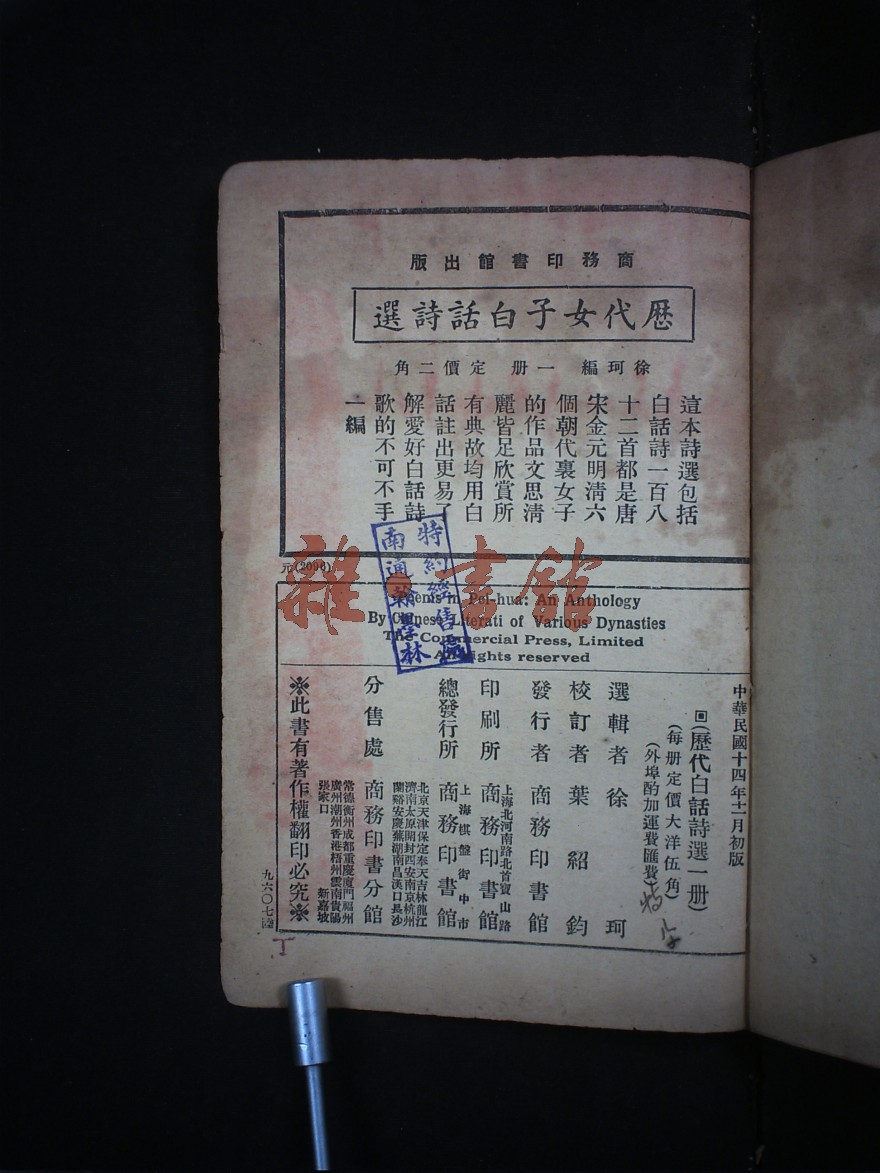 商務印書館出版
歷代女子白話詩選
徐珂編 一册 定價二角
這本詩選包括
白話詩一百八
十二首都是唐
宋金元明清六
個朝代裏女子
的作品文思清
麗皆足欣賞所
有典故均用白
話註出更易了
解愛好白話詩
歌的不可不手
一編
元(2096)
雜·書館
特約經售處
南通翰墨林
Poems in Pei-hua: An Anthology
By Chinese Literati of Various Dynasties
The Commercial Press, Limited
All rights reserved
中華民國十四年十一月初版
回(歷代白話詩選一册)
(每册定價大洋伍角)
(外埠酌加運費匯費)
選輯者 徐珂
校訂者 葉紹鈞
發行者 商務印書館
印刷所 上海北河南路北首寶山路 商務印書館
總發行所 上海棋盤街中市 商務印書館
分售處 商務印書分館
北京天津保定奉天吉林龍江
濟南太原開封西安南京杭州
蘭谿安慶蕪湖南昌漢口長沙
常德衡州成都重慶廈門福州
廣州潮州香港梧州雲南貴陽
張家口 新嘉坡
※此書有著作權翻印必究※
九六〇七
丁